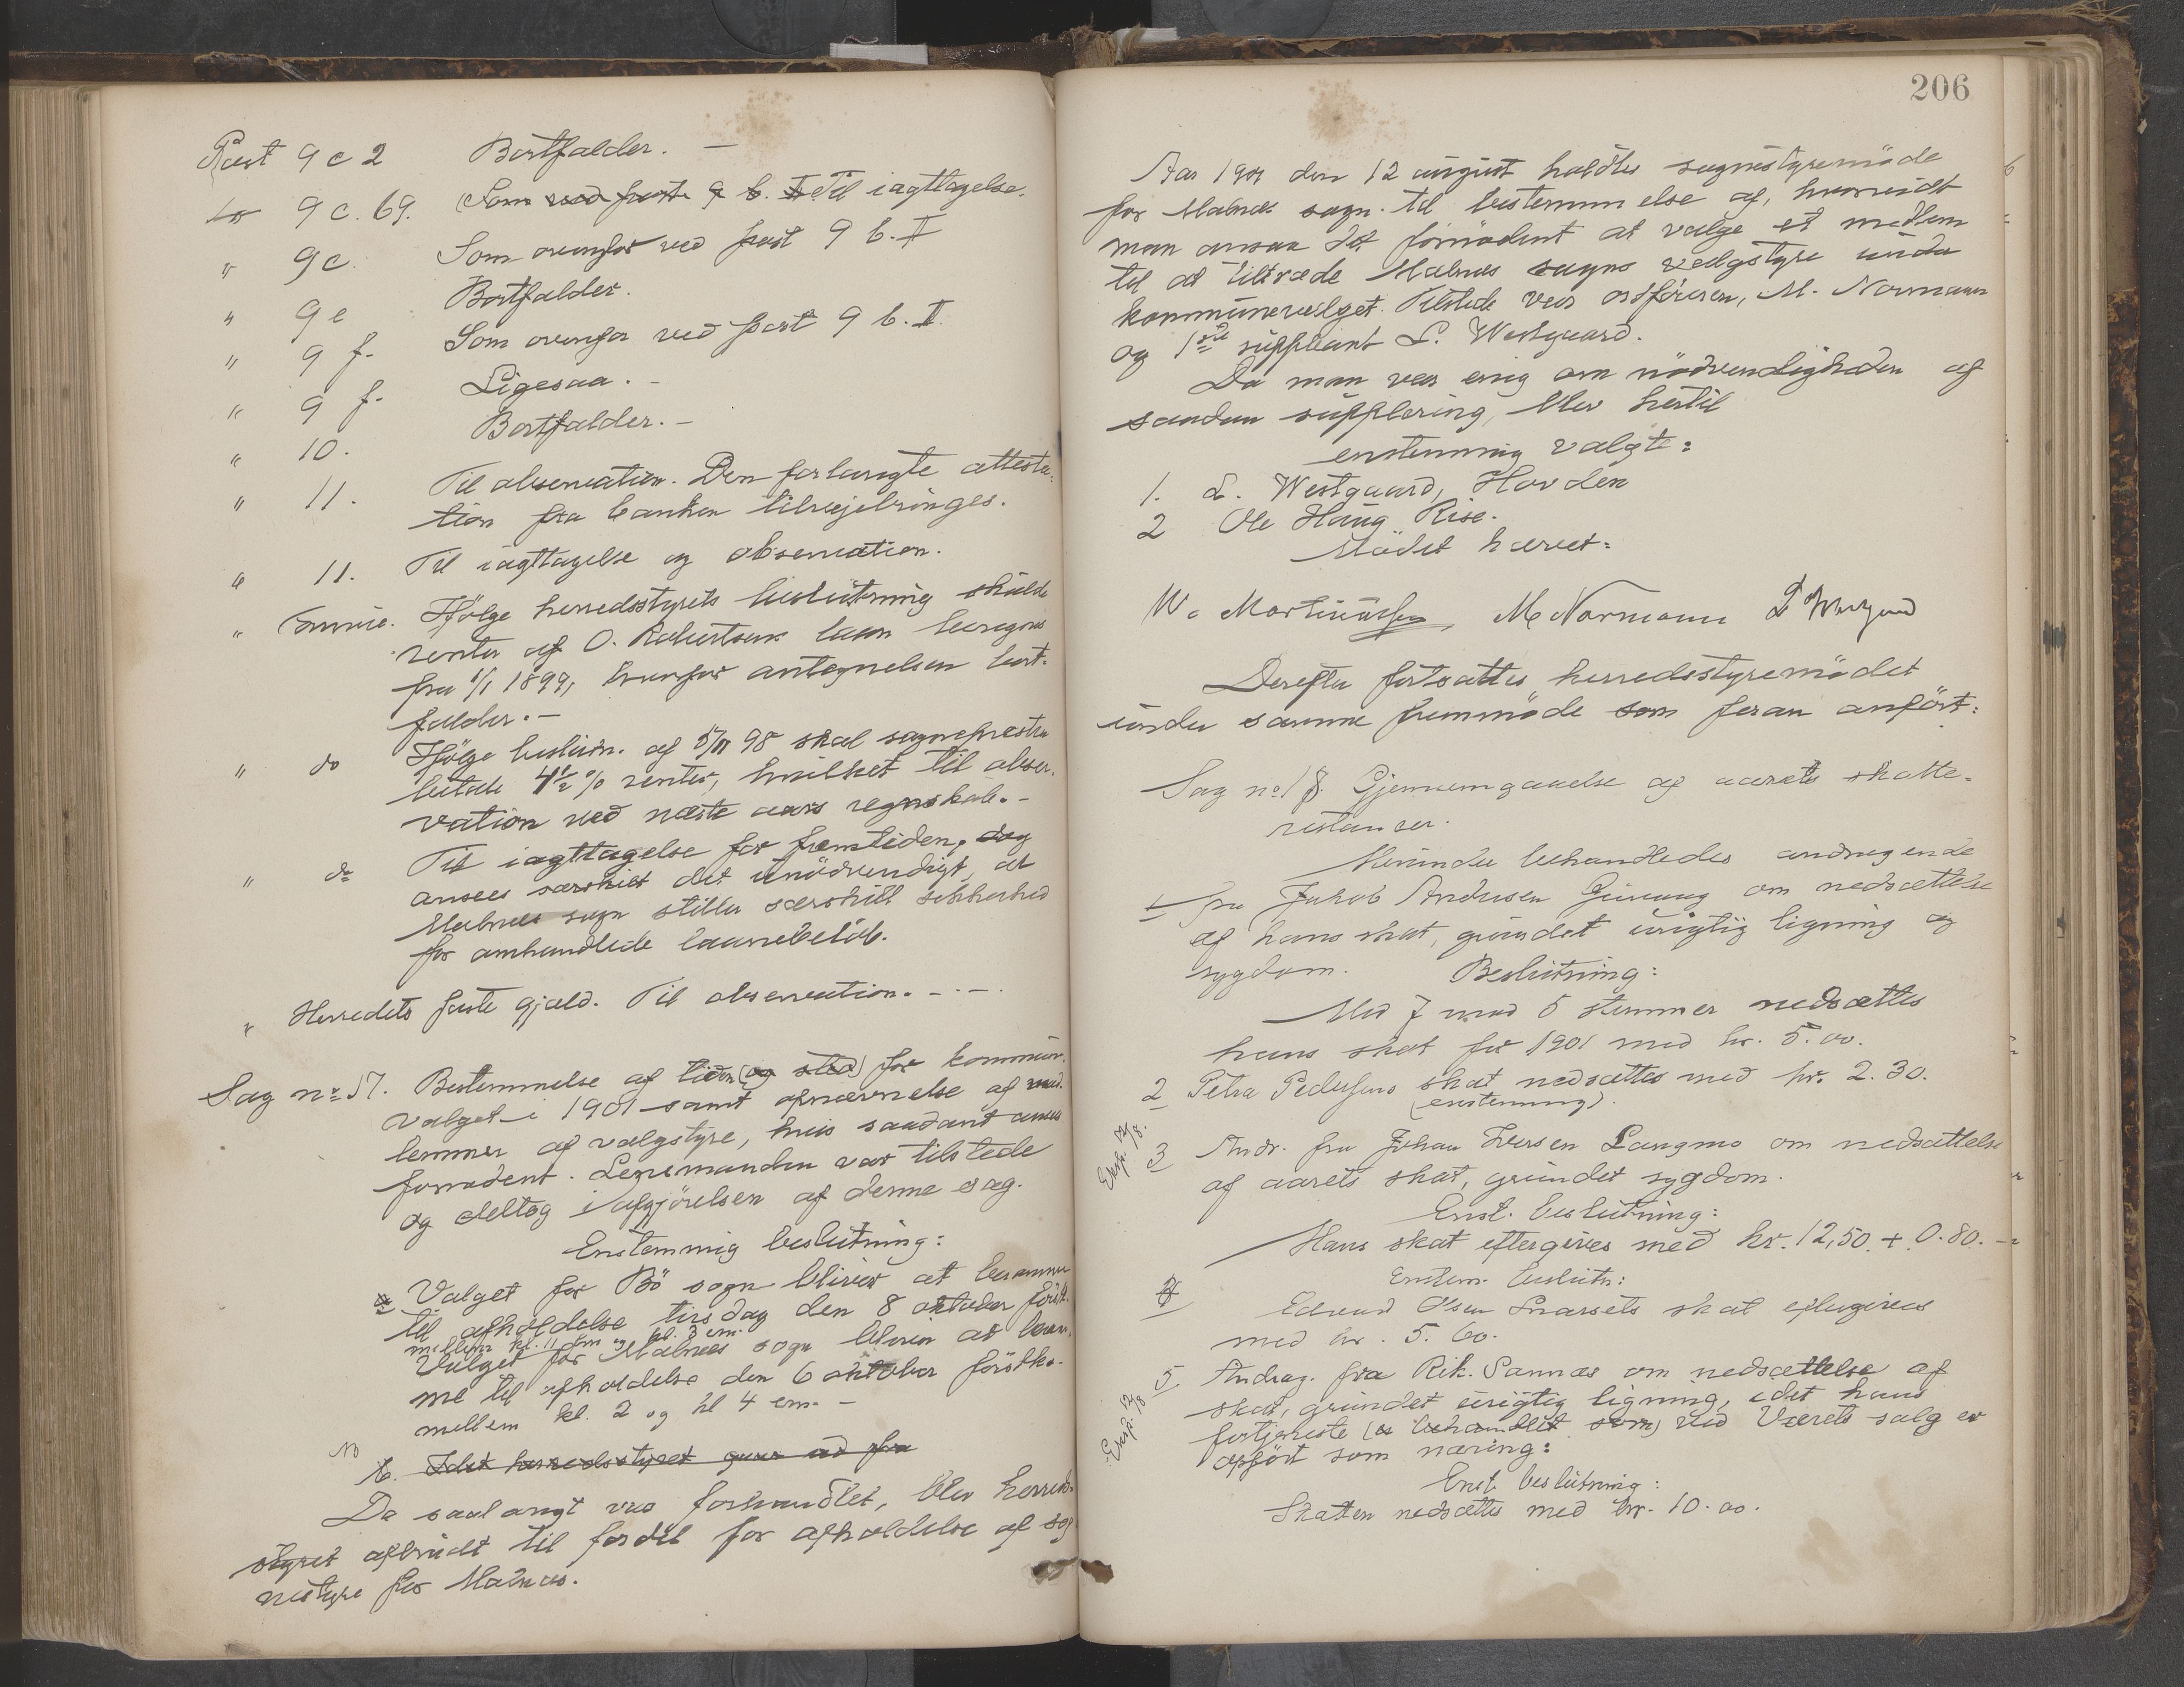 Post 9 c 2 Bortfalder. —
do 9 c. 69. Som ved poste 9 b. II Til iagttagelse.
" 9 c. Som ovenfor ved post 9 b. II
" 9 e Bortfalder.
" 9 f. Som ovenfor ved post 9 b. II.
" 9 f. Ligesaa. -
" 10. Bortfalder. -
" 11. Til observation. Den forlangte attesta-
tion fra banken tilvejebringes.
" 11. Til iagttagelse og observation.
" Ifölge herredsstyrets beslutning skulde
renter af O. Robertsens laan beregnes
fra 1/1 1899, hvorfor antegnelsen bort-
falder. -
" do Ifölge beslutn. af 98 skal sognepresten
betale 4½ % renter, hvilket til obser-
vation ved næste aars regnskab. -
" do Til iagttagelse for fremtiden, dog
ansees særskilt det unödvendigt, at
Malnes sogn stiller særskilt sikkerhed
for omhandlede laanebelöb.
" Herredets faste gjæld. Til observation. - . -
Sag no 17. Bestemmelse af tiden (og sted) for kommune-
valget i 1901 samt opnævnelse af med-
lemmer af valgstyre, hvis saadant ansees
fornödent. Lensmanden var tilstede
og deltog i afgjörelsen af denne sag.
Enstemmig beslutning:
a Valget for Bö sogn bliver at beramme
til afholdelse tirsdag den 8 oktober förstk.
mellem kl. 11 fm og kl. 3 em.
Valget for Malnes sogn bliver at beram-
me til afholdelse den 6 oktober förstko.
mellem kl. 2 og kl 4 em. -
No b. Idet herredsstyret gaar ud fra
Da saalangt var forhandlet, blev herreds-
styret afbrudt til fordel for afholdelse af sog
nestyre for Malnes.
206
Aar 1901 den 12 august holdtes sognestyremöde
for Malnes sogn til bestemmelse af, hvorvidt
man ansaa det fornödent at vælge et medlem
til at tiltræde Malnes sogns valgstyre under
kommunevalget. Tilstede var ordföreren, M. Normann
og 1ste suppleant L. Westgaard.
Da man var enig om nödvendigheden af
saadan supplering, blev hertil
enstemmig valgte:
1. L. Westgaard, Hovden
2 Ole Haug Rise.
Mödet hævet:
W. Martinussen, M Normann L Westgaard
Derefter fortsattes herredsstyremödet
under samme fremmöde som foran anfört:
Sag no 18. Gjennemgaaelse af aarets skatte-
restanser.
Herunder behandledes andragende
1 fra Jakob Andresen om nedsættelse
af hans skat, grundet urigtig ligning og
sygdom. Beslutning:
Med 7 mod 5 stemmer nedsættes
hans skat for 1901 med kr. 5.00.
2 Petra Pedersens skat nedsættes med kr. 2.30.
(enstemmig).
Exsp. /8.
3 Andr. fra Johan Iversen Langmo om nedsættelse
af aarets skat, grundet sygdom.
Enst. beslutning:
Hans skat eftergives med kr. 12,50 + 0.80. -
4 Enstem. beslutn:
Edvard Olsen skat eftergives
med kr. 5.60.
Exsp. /8
5 Andrag. fra Rik. Sannes om nedsættelse af
skat, grundet urigtig ligning, idet hans
fortjeneste (er behandlet som) ved Værets salg er
opfört som næring:
Enst. beslutning:
Skatten nedsættes med kr. 10.00.